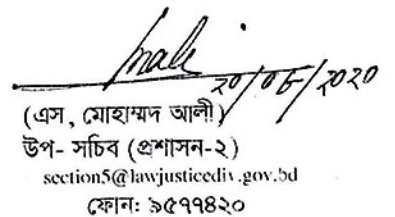 ২০/০৮/২০২০
(এস, মোহাম্মদ আলী)
উপ- সচিব (প্রশাসন-২)
section5@lawjusticediv.gov.bd
ফোন: ৯৫৭৭৪২০